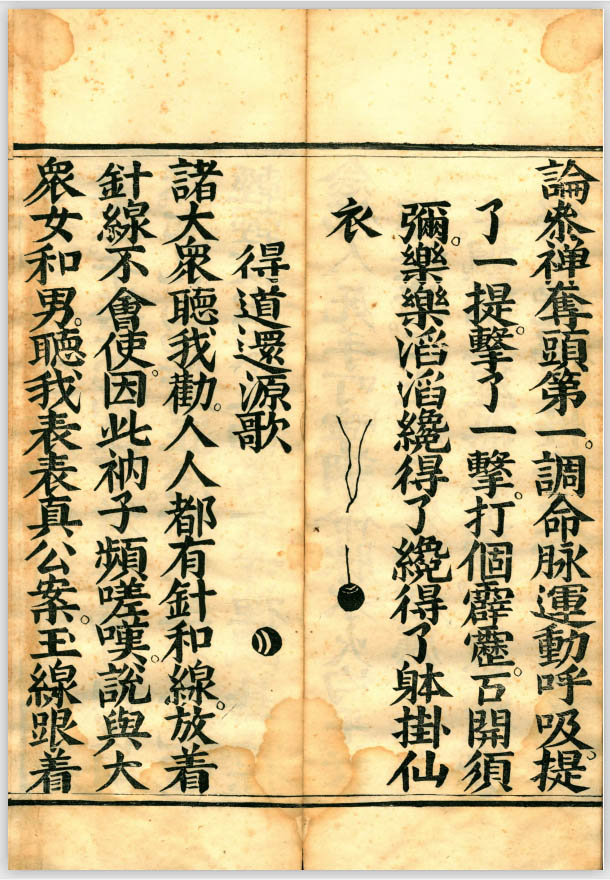 論叅禅奪頭第一。調命脉運動呼吸。提
了一提。擊了一擊。打個霹靂。石開須
彌。樂樂滔滔纔得了。纔得了躰掛仙
衣
得道還源歌
諸大衆聽我勸。人人都有針和線。放着
針線不會使。因此衲子頻嗟嘆。說與大
衆女和男。聽我表表真公案。玉線跟着